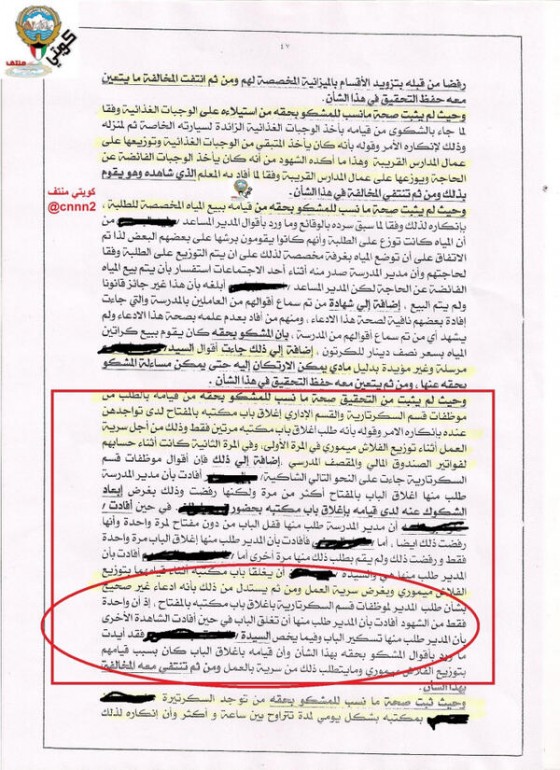 كويتي
منتف
١٧
رفضا من قبله بتزويد الأقسام بالميزانية المخصصة لهم ومن ثم انتفت المخالفة ما يتعين
معه حفظ التحقيق في هذا الشأن.
وحيث لم يثبت صحة مانسب للمشكو بحقه من استيلاءه على الوجبات الغذائية وفقا
لما جاء بالشكوى من قيامه بأخذ الوجبات الغذائية الزائدة لسيارته الخاصة ثم لمنزله
وذلك لإنكاره الأمر وقوله بأنه كان يأخذ المتبقي من الوجبات الغذائية وتوزيعها على
عمال المدارس القريبة وهذا ما أكده الشهود من أنه كان يأخذ الوجبات الفائضة عن
الحاجة ويوزعها على عمال المدارس القريبة وفقا لما أفاد به المعلم الذي شاهده وهو يقوم
بذلك ومن ثم تنتفي المخالفة في هذا الشأن.
كويتي منتف
@cnnn2
وحيث لم يثبت صحة ما نسب للمشكو بحقه من قيامه ببيع المياه المخصصة للطلبة ,
بإنكاره لذلك وفقا لما سبق سرده بالوقائع وما ورد بأقوال المدير المساعد /
أن المياه كانت توزع على الطلبة وأنهم كانوا يقومون برشها على بعضهم البعض لذا تم
الاتفاق على أن توضع المياه بغرفة مخصصة لذلك على ان يتم التوزيع على الطلبة وفقا
لحاجتهم وأن مدير المدرسة صدر منه أثناء أحد الاجتماعات استفسار بأن يتم بيع المياه
الفائضة عن الحاجة لكن المدير المساعد / أبلغه بأن هذا غير جائز قانونا
ولم يتم البيع , اضافة إلي شهادة من تم سماع أقوالهم من العاملين بالمدرسة والتي جاءت
إفادة بعضهم نافية لصحة هذا الادعاء , ومنهم من أفاد بعدم علمه بصحة هذا الادعاء ولم
يشهد أي من تم سماع أقوالهم من المدرسة , بأن المشكو بحقه كان يقوم ببيع كراتين
المياه بسعر نصف دينار للكرتون , إضافة إلي ذلك جاءت أقوال السيد/
مرسلة وغير مؤيدة بدليل مادي يمكن الارتكان إليه حتى يمكن مساءلة المشكو
بحقه عنها , ومن ثم يتعين معه حفظ التحقيق في هذا الشأن.
وحيث لم يثبت من التحقيق صحة ما نسب للمشكو بحقه من قيامه بالطلب من
موظفات قسم السكرتارية والقسم الإداري إغلاق باب مكتبه بالمفتاح لدى تواجدهن
عنده بإنكاره الأمر وقوله بأنه طلب اغلاق باب مكتبه مرتين فقط وذلك من أجل سرية
العمل أثناء توزيع الفلاش ميموري في المرة الأولى, وفي المرة الثانية كانت أثناء حسابهم
لفواتير الصندوق المالي والمقصف المدرسي , اضافة إلي ذلك فإن أقوال موظفات قسم
السكرتارية جاءت على النحو التالي الشاكية / أفادت بأن مدير المدرسة
طلب منها اغلاق الباب بالمفتاح أكثر من مرة ولكنها رفضت وذلك بغرض إبعاد
الشكوك عنه لدى قيامه بإغلاق باب مكتبه بحضور في حين أفادت /
أن مدير المدرسة طلب منها قفل الباب من دون مفتاح لمرة واحدة وأنها
رفضت ذلك ايضا , أما / فأفادت بأن المدير طلب منها إغلاق الباب مرة واحدة
فقط و رفضت ذلك ولم يقم بطلب ذلك منها مرة أخرى أما / أفادت بأن
المدير طلب منها هي والسيدة / أن يغلقا باب مكتبه أثناء قيامهم بتوزيع
الفلاش ميموري وبغرض سرية العمل ومن ثم يستدل من ذلك بأنه ادعاء غير صحيح
بشأن طلب المدير لموظفات قسم السكرتارية باغلاق باب مكتبه بالمفتاح , إذ ان واحدة
فقط من الشهود أفادت بأن المدير طلب منها أن تغلق الباب في حين أفادت الشاهدة الأخرى
بأن المدير طلب منها تسكير الباب وفيما يخص السيدة / فقد أيدت
ما ورد بأقوال المشكو بحقه بهذا الشأن وأن قيامه بإغلاق الباب كان بسبب قيامهم
بتوزيع الفلاش ميموري ومايتطلب ذلك من سرية بالعمل ومن ثم تنتفي معه المخالفة
بهذا الشأن.
وحيث ثبت صحة ما نسب للمشكو بحقه من تواجد السكرتيرة
بمكتبه بشكل يومي لمدة تتراوح بين ساعة و أكثر وأن إنكاره لذلك